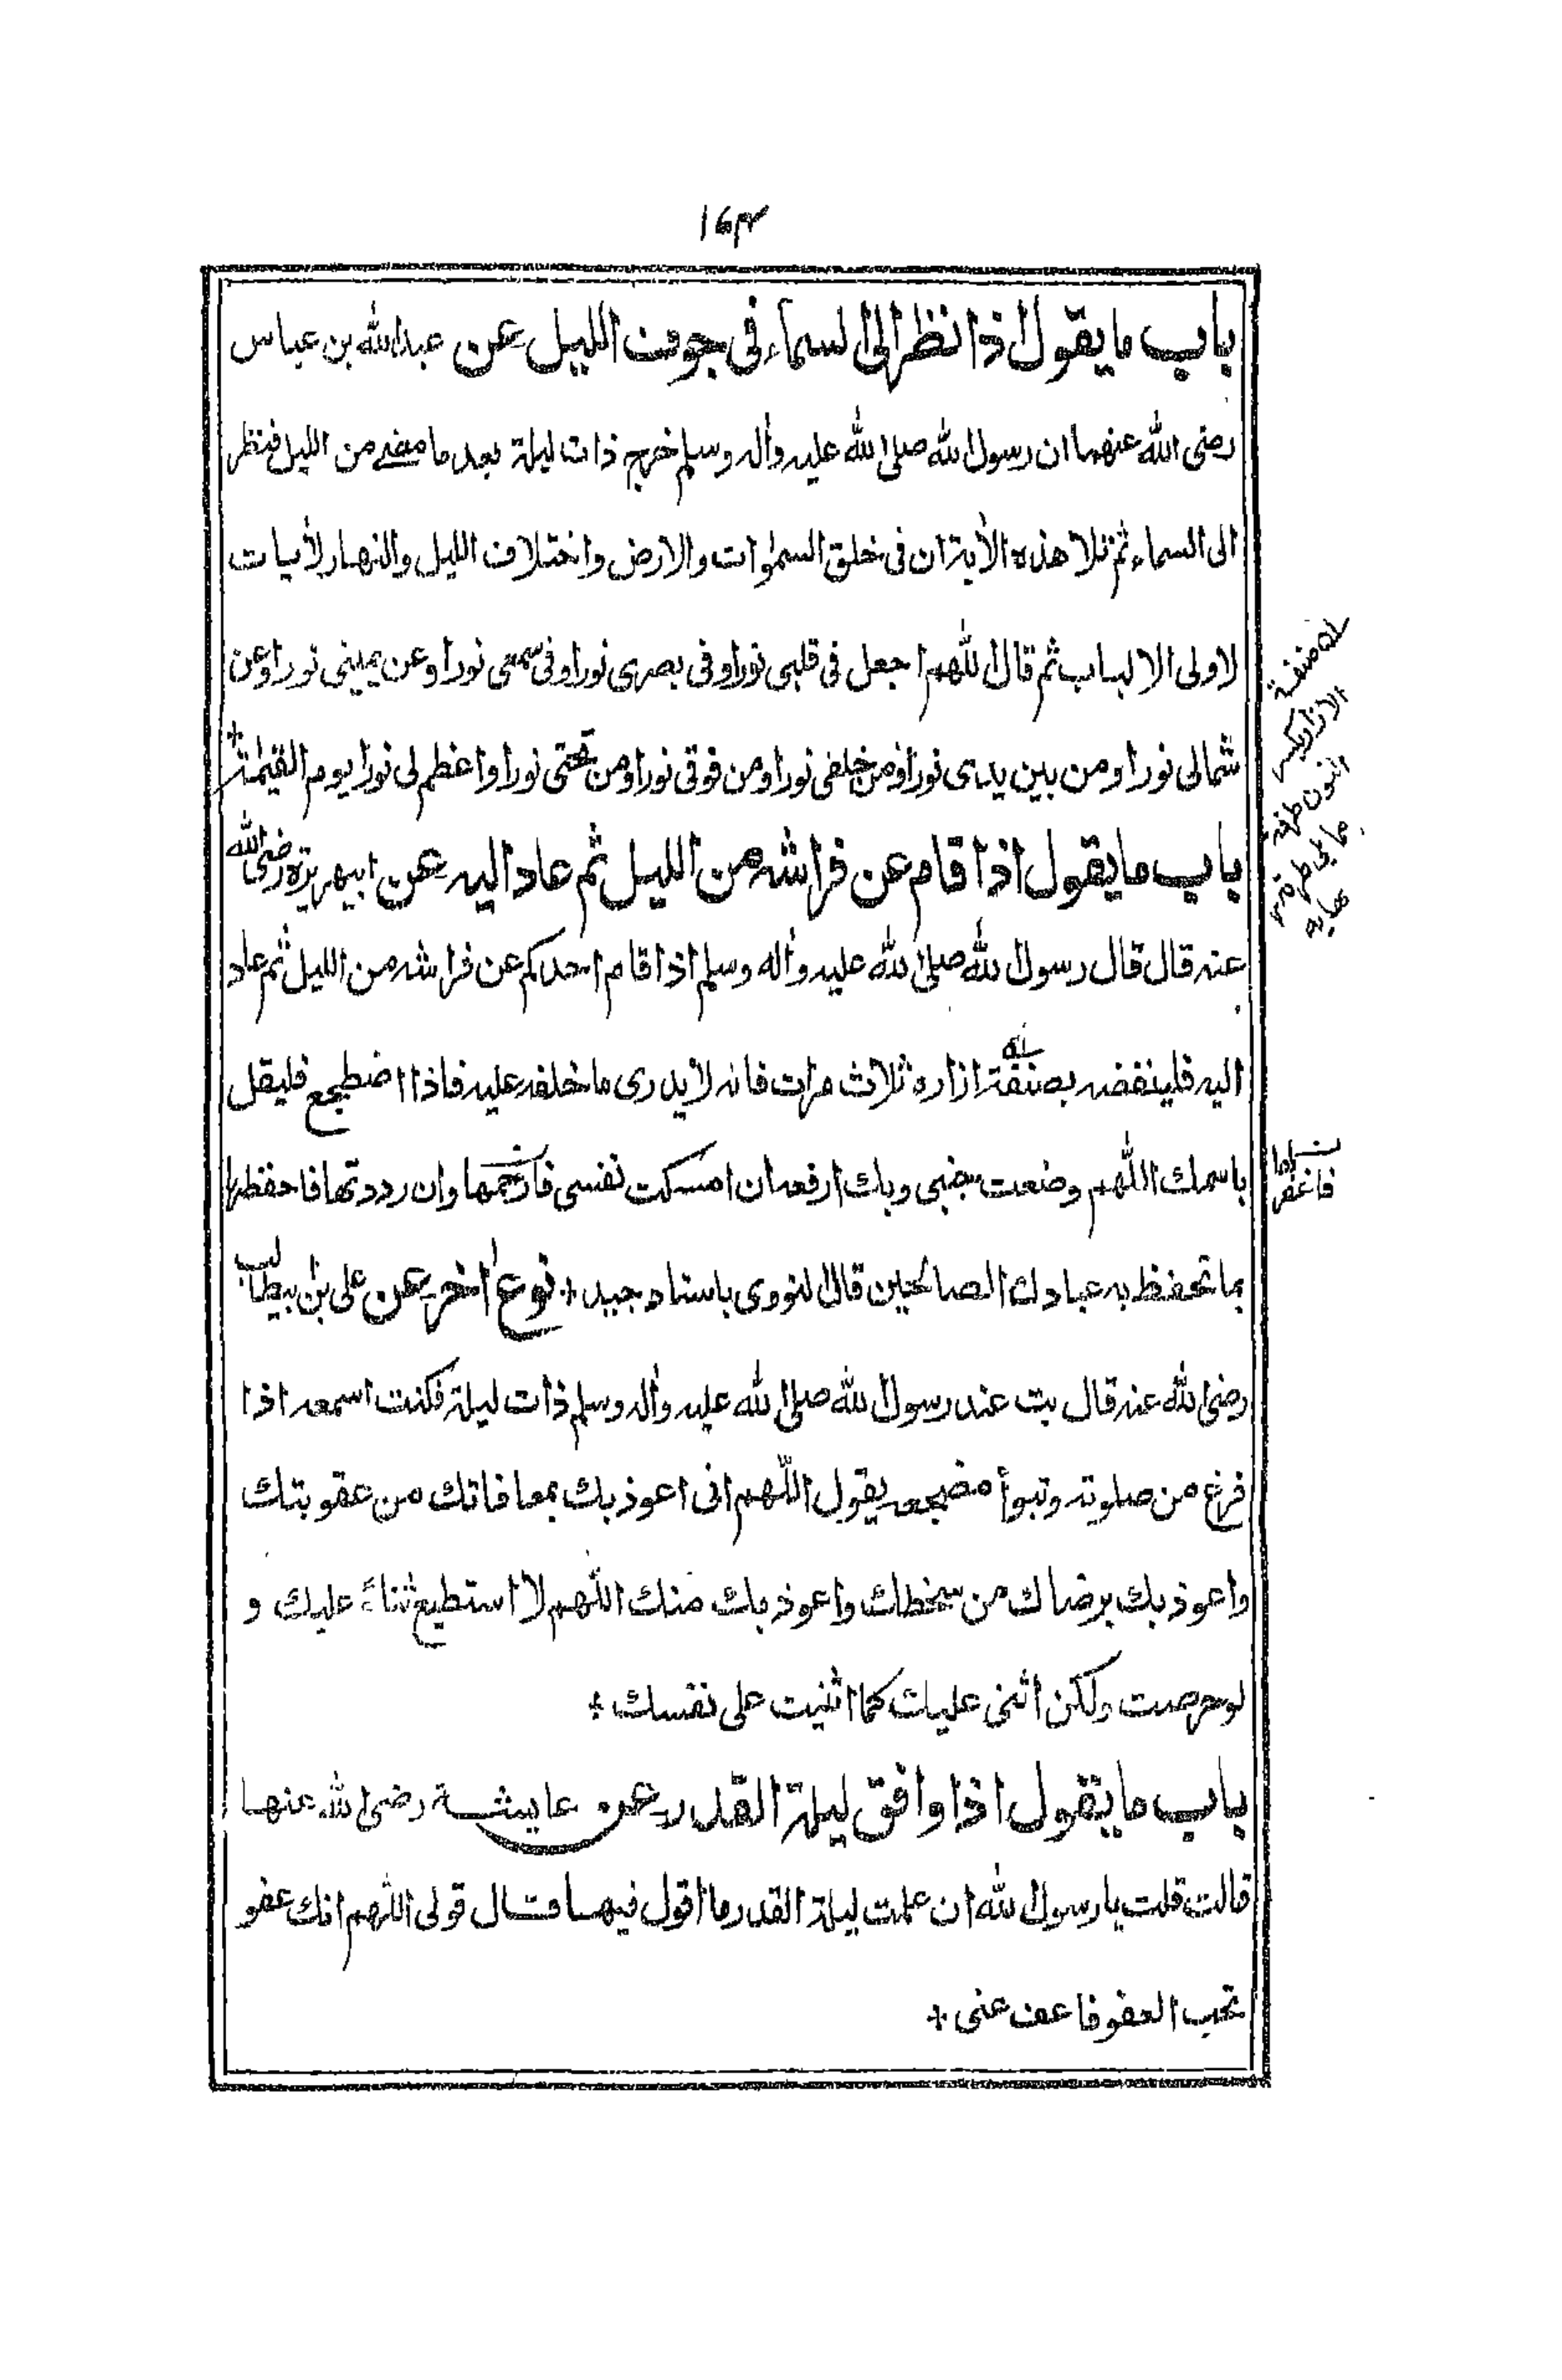 ۱۶۴
باب ما يقول اذا نظر الى السماء فى جوف الليل عن عبد الله بن عباس
رضى الله عنهما ان رسول الله صلى الله عليه وأله وسلم خرج ذات ليلة بعد ما مضى من الليل فنظر
الى السماء ثم تلا هذه الأية ان فى خلق السمٰوات والارض واختلاف الليل والنهار لأيات
لاولى الالباب ثم قال اللهم اجعل فى قلبى نورا وفى بصرى نورا وفى سمعى نورا وعن يمينى نورا وعن
شمالى نورا ومن بين يدى نورا ومن خلفى نورا ومن فوقى نورا ومن تحتى نورا واعظم لى نورا يوم القيٰمة +
باب ما يقول اذا قام عن فراشه من الليل ثم عاد اليه عن ابيهريرة رضى الله
عنه قال قال رسول الله صلى الله عليه وأله وسلم اذا قام احدكم عن فراشه من الليل ثم عاد
اليه فلينفضه بصنفة ازاره ثلاث مرات فانه لا يدرى ما خلفه عليه فاذا اضطجع فليقل
باسمك اللهم وضعت جنبى وبك ارفعه ان امسكت نفسى فارحمها وان رددتها فاحفظها
بما تحفظ به عبادك الصالحين قال النووى باسناد جيد + نوع أخر عن على بن ابيطالب
رضى الله عنه قال بت عند رسول الله صلى الله عليه وأله وسلم ذات ليلة فكنت اسمعه اذا
فرغ من صلوته وتبوأ مضجعه يقول اللّهم انى اعوذ بك بمعافاتك من عقوبتك
واعوذ بك برضاك من سخطك واعوذ بك منك اللّهم لا استطيع ثناءً عليك و
لو حرصت ولكن أثنى عليك كما اثنيت على نفسك +
باب ما يقول اذا وافق ليلة القدر عن عايشة رضى الله عنها
قالت قلت يا رسول الله ان علمت ليلة القدر ما اقول فيها قال قولى اللّهم انك عفو
تحب العفو فاعف عنى +
صنفة
الازار بكسر
النون طرفه
مما يلى طرته
نهايه
فاغفر لها